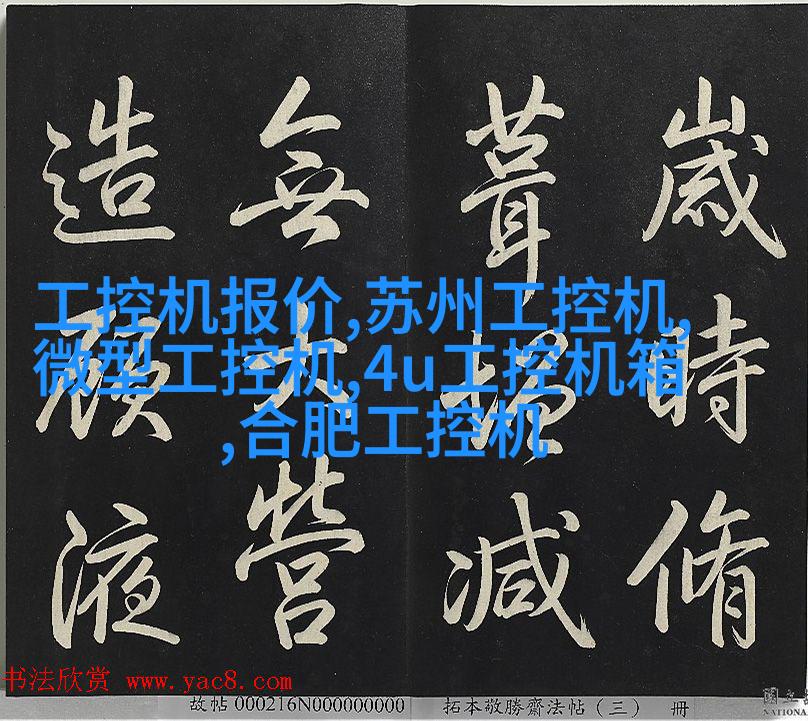 歲時脩
葺增減
無大營
造顧液
工控机报价,苏州工控机,
微型工控机,4u工控机箱
,合肥工控机
书法欣赏 www.yac8.com
故帖 000216N000000000 拓本敬勝齋法帖（三） 冊
國立
NATIONA